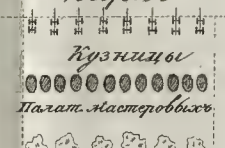 Кузницы
Палат. Мастеровыхъ